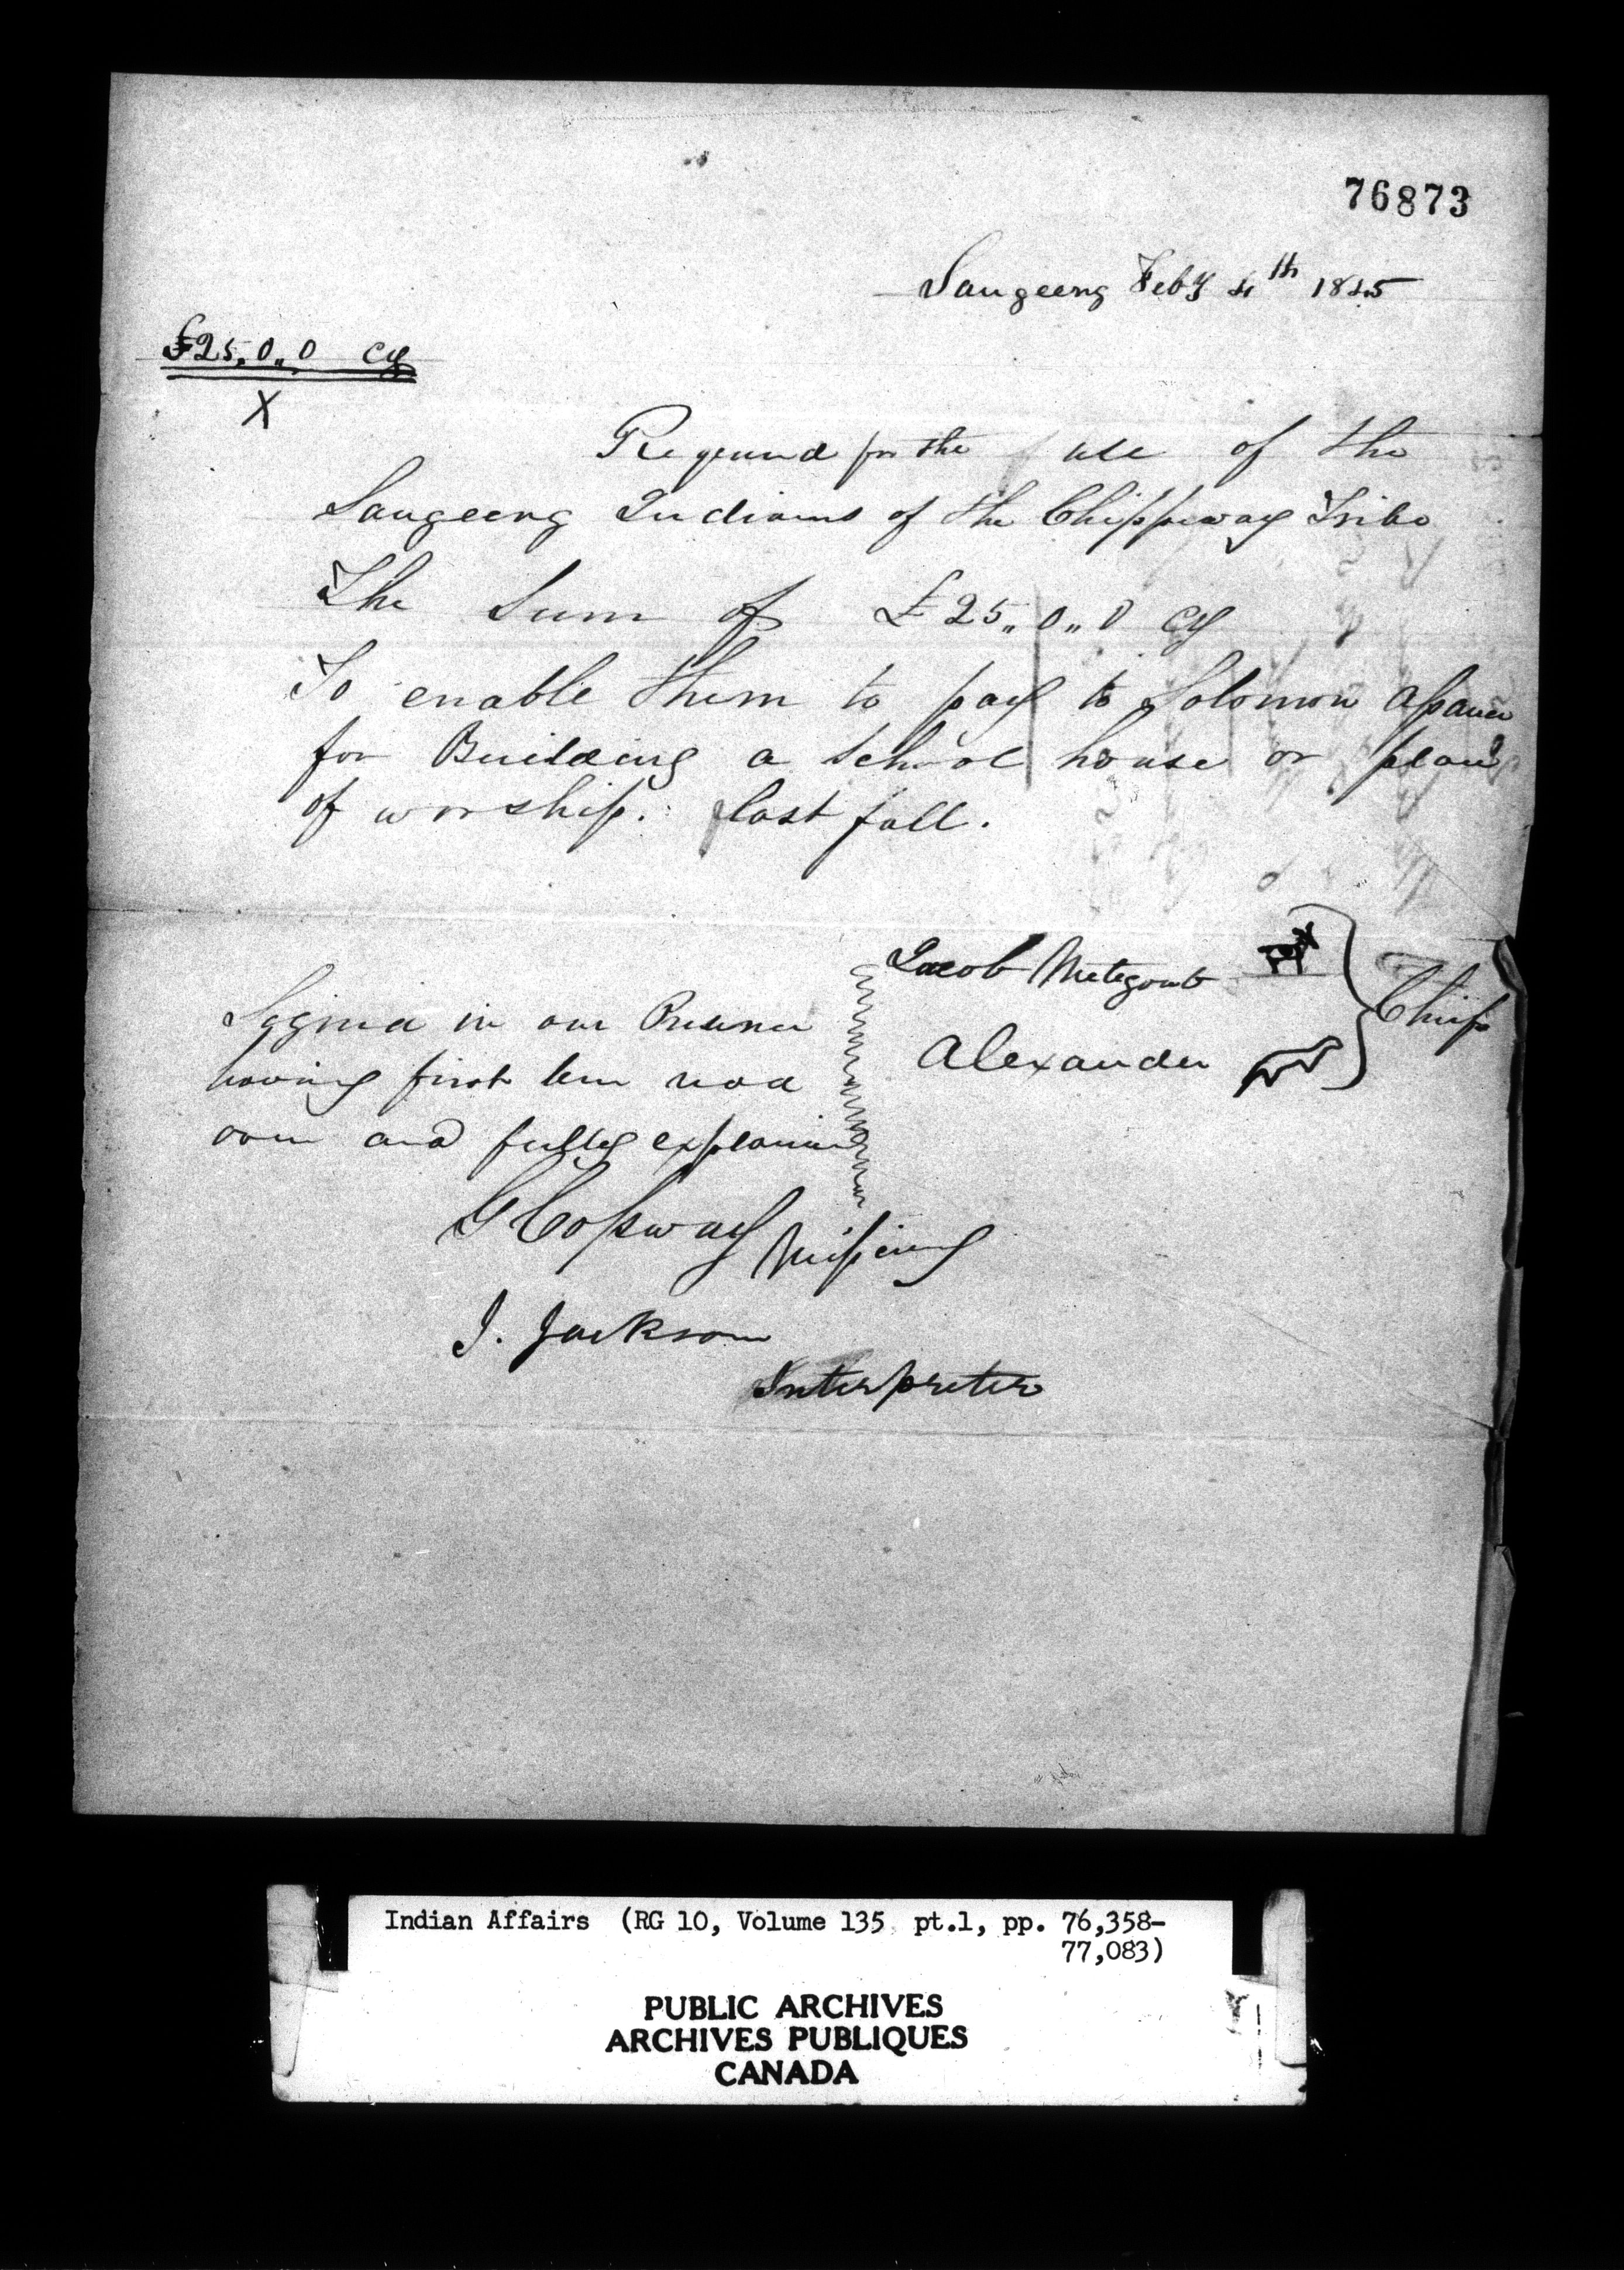 76873
Saugeeng Feby 4th 1845
£25.0.0 Cy
X
Required for the use of the
Saugeeng Indians of the Chippeway Tribe
The Sum of £25.0.0 Cy
To enable them to pay to Solomon
for Building a School house or place
of worship. last fall.
Jacob Metegoub
Alexander
Chiefs
Signed in our Presence
having first been read
over and fully explained
G Copway Missiony
J. Jackson
Interpreter
Indian Affairs (RG 10, Volume 135 pt.1, pp. 76,358-
77,083)
PUBLIC ARCHIVES
ARCHIVES PUBLIQUES
CANADA